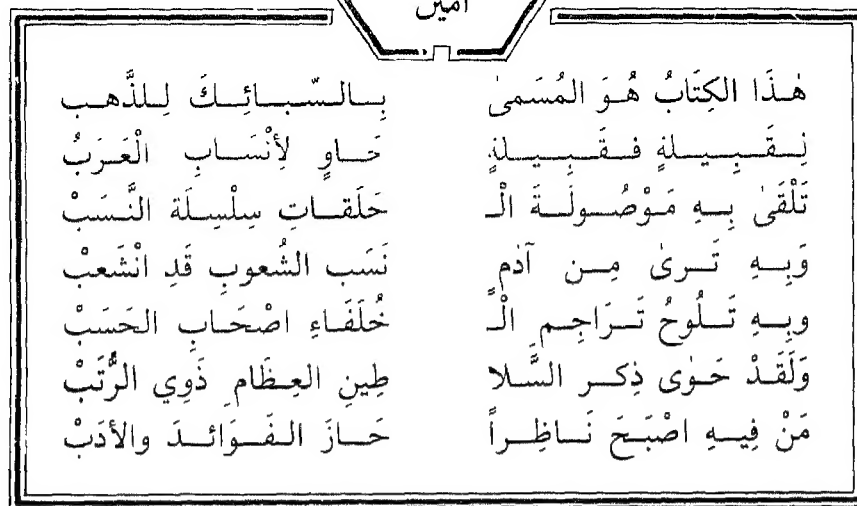 أمين
هٰذَا الكِتَابُ هُوَ المُسَمىٰ بِالسّبائِكَ لِلذَّهب
نِقَبِيلةٍ فقَبِيلةٍ حَاوٍ لِأنْسَابِ الْعَرَبُ
تَلْقَىٰ بِهِ مَوْصُولَةَ الْـ حَلَقاتِ سِلْسِلَة النَّسَبْ
وَبِهِ تَرىٰ مِن آدَم نَسَب الشُعوبِ قَدِ انْشَعبْ
وبِهِ تَلُوحُ تَرَاجِم الْـ خُلَفَاءِ اصْحَابِ الحَسَبْ
وَلَقَدْ حَوٰى ذِكر السَّلا طِينِ العِظَامِ ذَوِي الرُّتَبْ
مَنْ فِيهِ اصْبَحَ نَاظِراً حَازَ الفَوَائدَ والأدَبْ